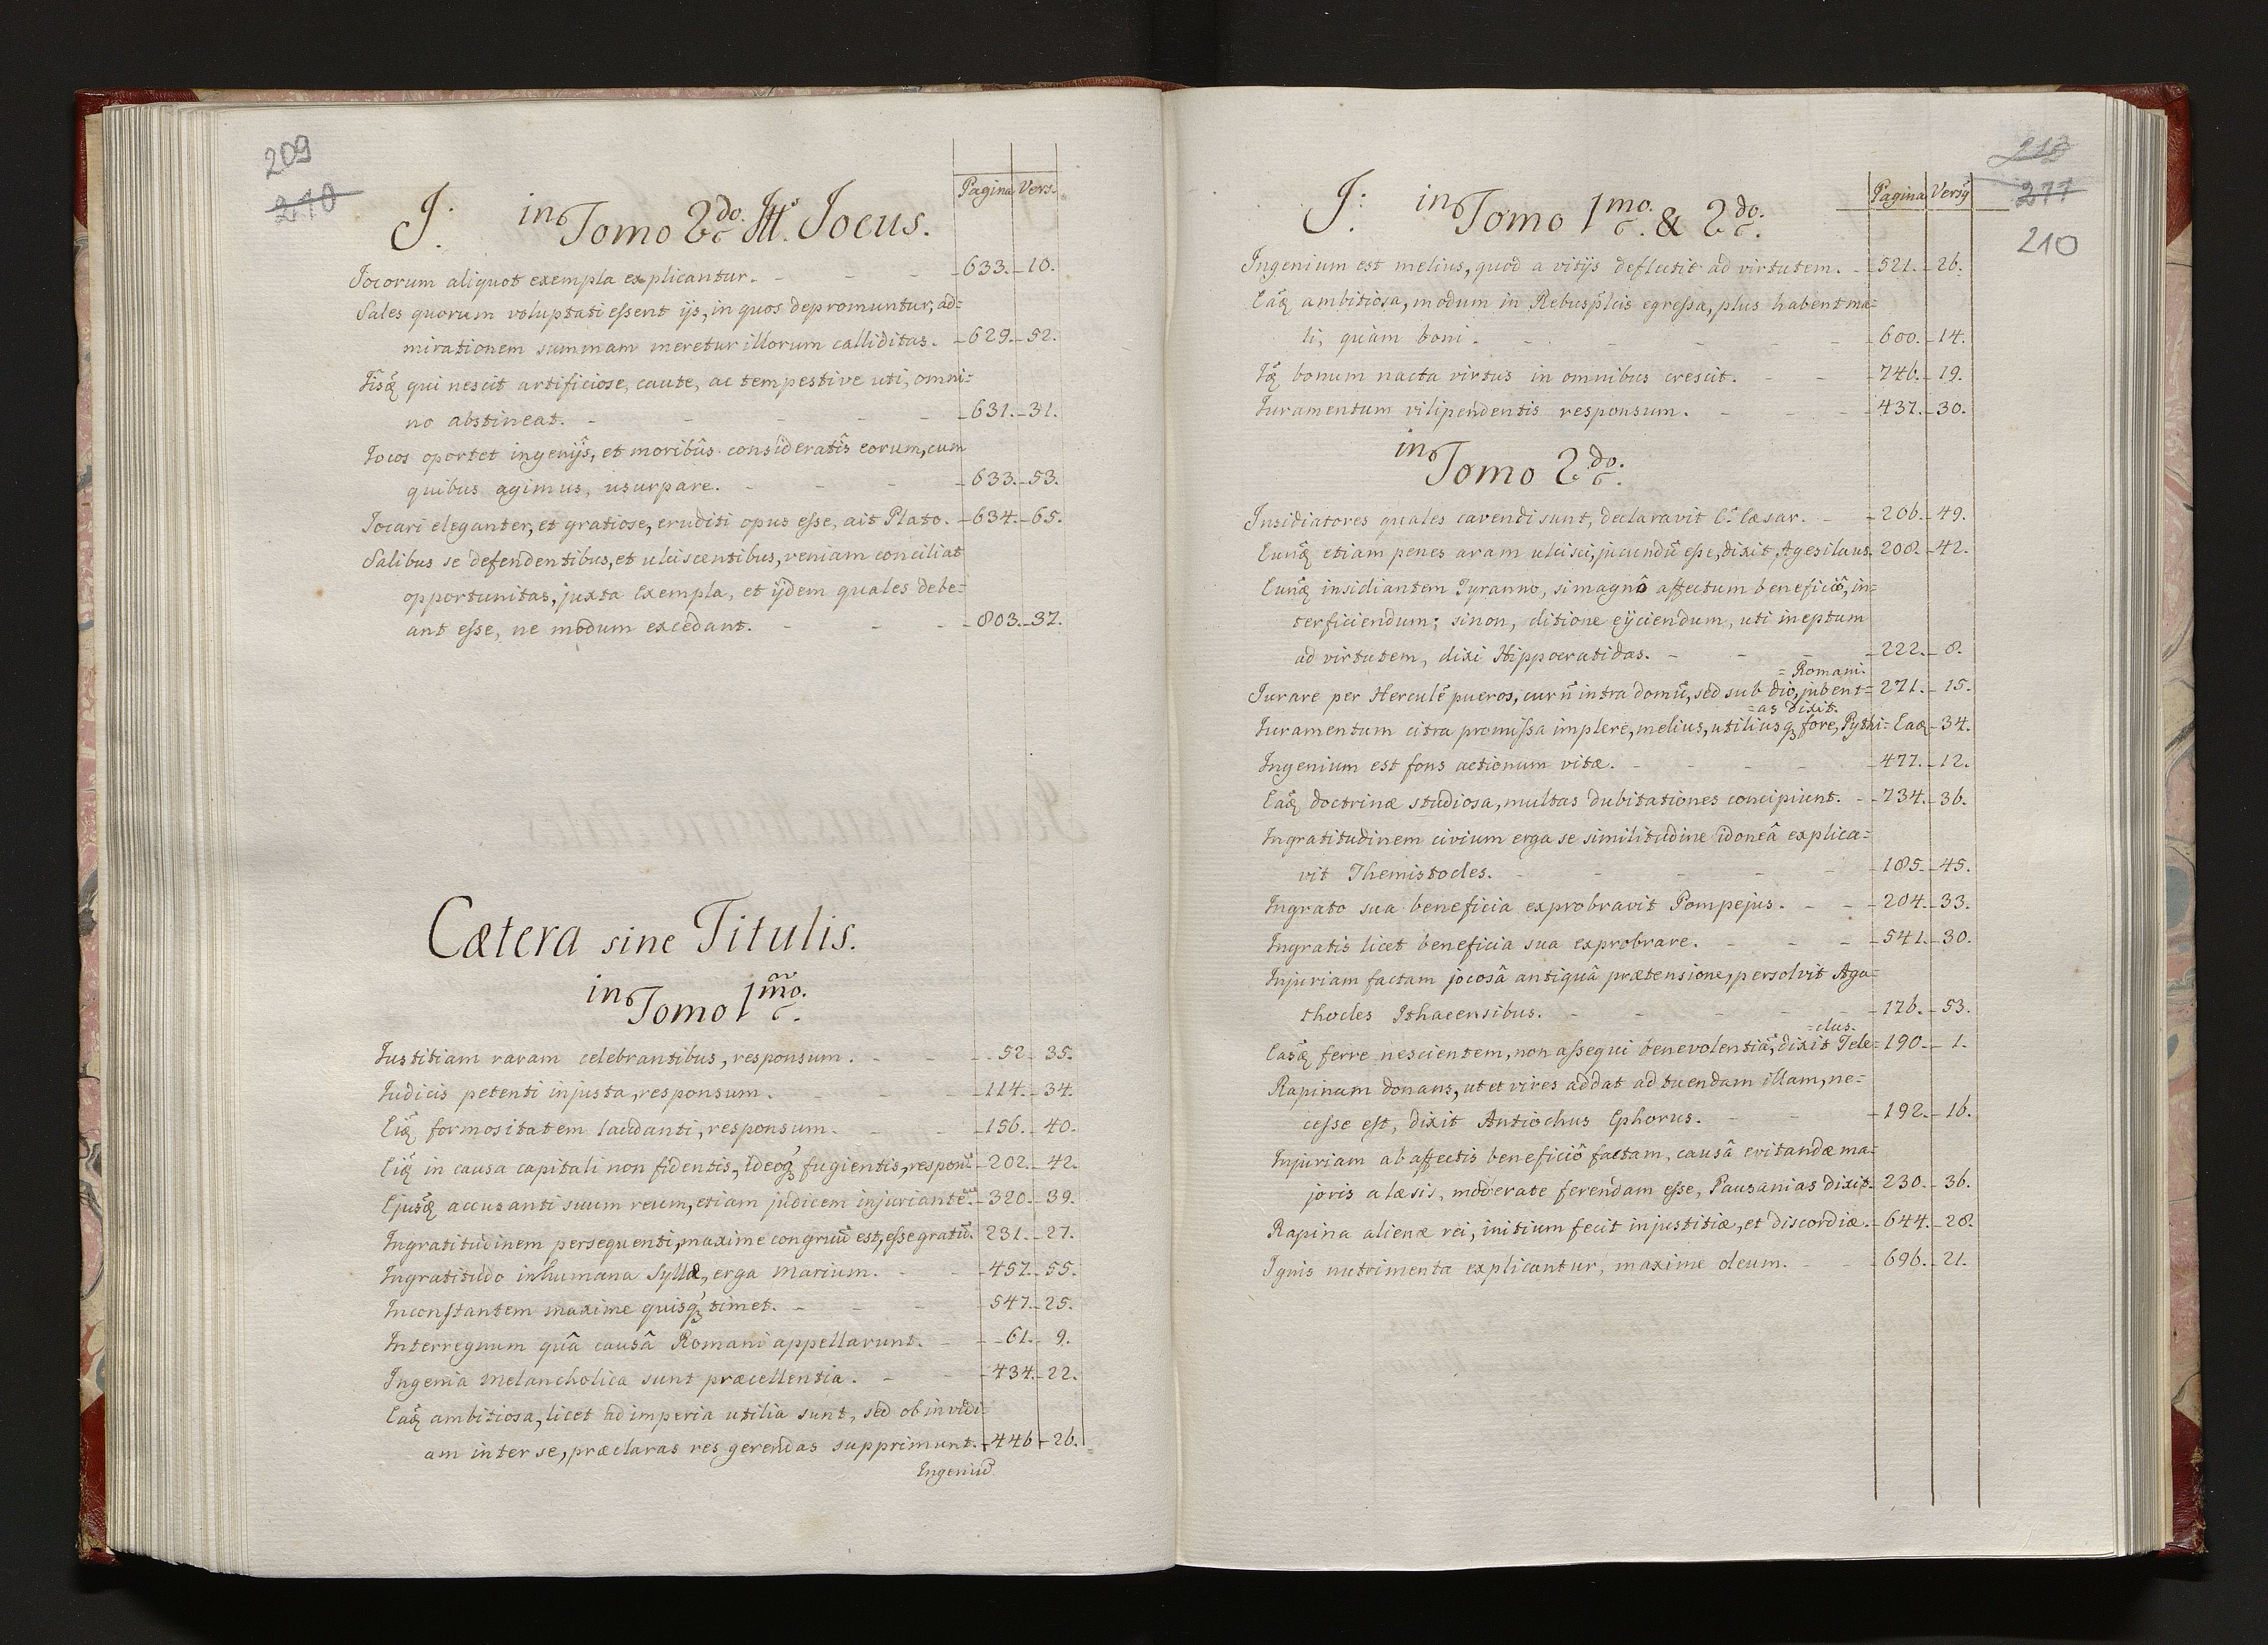 209
210
Pagina Vers.
J: in Tomo 2do. Jocus.
Jocorum aliquot exempla explicantur. - 633. - 10.
Sales quorum voluptati essent ijs, in quos depromuntur, ad=
mirationem summam meretur illorum calliditas. - 629. - 52.
qui nescit artificiose, caute, ac tempestive uti, omni=
no abstineat. - 631. - 31.
Jocos oportet ingenijs, et moribûs consideratîs eorum, cum
quibus agimus, usurpare. - 633. - 53.
Jocari eleganter, et gratiose, eruditi opus esse, ait Plato. - 634. - 65.
Salibus se defendentibus, et ulciscentibus, veniam conciliat
opportunitas, juxta Exempla, et ijdem quales debe=
ant esse, ne modum excedant. - 803. - 37.
Cætera sine Titulis.
in Tomo 1mo.
Justitiam raram celebrantibus, responsum. - 52 - 35.
Judicis petenti injusta, responsum. - 114. - 34.
formositatem laudanti, responsum. - 156. - 40.
in causa capitali non fidentis, ideoq fugientis, respons - 202. - 42.
accusanti suum reum, etiam judicem injuriantē. - 320. - 39.
Ingratitudinem persequenti, maxime congruū est, esse gratū. 231. - 27.
Ingratitudo inhumana Syllæ, erga Marium. - 457. - 55.
Inconstantem maxime quisq timet. - 547. - 25.
Interregnum quâ causâ Romani appellarunt. - 61. - 9.
Ingenia Melancholica sunt præcellentia. - 434. - 22.
ambitiosa, licet ad imperia utilia sunt, sed ob invidi=
am inter se, præclaras res gerendas supprimunt. - 446 - 26.
Ingeniū
213
211
210
Pagina Versq
J: in Tomo 1mo. & 2do.
Ingenium est melius, quod a vitijs deflectit ad virtutem. - 521. - 26.
ambitiosa, modum in Rebusplcis egressa, plus habent ma=
li, quàm boni. - 600. - 14.
bonum nacta virtus in omnibus crescit. - 746. - 19.
Juramentum vilipendentis responsum. - 437. - 30.
in Tomo 2do.
Insidiatores quales cavendi sunt, declaravit C. Cæsar. - 206. - 49.
etiam penes aram ulcisci, jucundū esse, dixit Agesilaus. 208. - 42.
insidiantem Tyranno, si magnô affectum beneficiô, in=
terficiendum; sinon, ditione eijciendum, uti ineptum
ad virtutem, dixi Hippocratidas. - 222. - 8.
= Romani.
Jurare per Herculē pueros, cur n̄ intra domū, sed sub dio, jubent= 271. - 15.
=as dixit.
Juramentum citra promissa implere, melius, utiliusq fore, Pythi= Eaq - 34.
Ingenium est fons actionum vitæ. - 477. - 12.
doctrinæ studiosa, multas dubitationes concipiunt. - 734. - 36.
Ingratitudinem civium erga se similitudine idoneâ explica=
vit Themistocles. - 185. - 45.
Ingrato sua beneficia exprobravit Pompejus. - 204. - 33.
Ingratis licet beneficia sua exprobrare. - 541. - 30.
Injuriam factam jocosâ antiquâ prætensione, persolvit Aga=
thocles Ithacensibus. - 176. - 53.
=clus.
ferre nescientem, non assequi benevolentiā, dixit Tele= 190. - 1.
Rapinam donans, ut et vires addat ad tuendam illam, ne=
cesse est, dixit Antiochus Ephorus. - 192. - 16.
Injuriam ab affectis beneficiô factam, causâ evitandæ ma=
joris a læsis, moderate ferendam esse, Pausanias dixit. - 230. - 36.
Rapina alienæ rei, initium fecit injustitiæ, et discordiæ. - 644. - 28.
Ignis nutrimenta explicantur, maxime oleum. - 696. - 21.